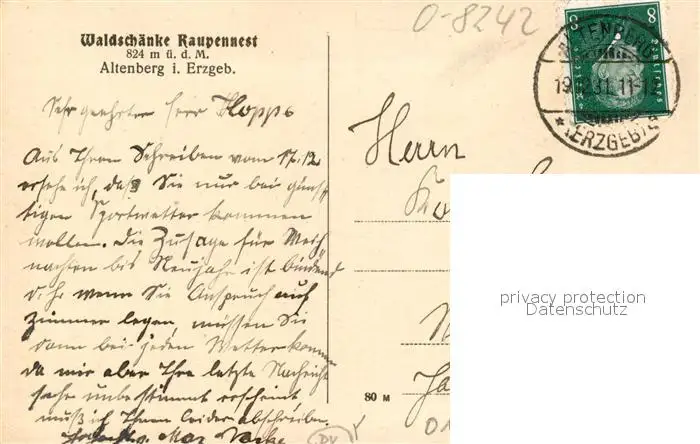 O-8242
Waldschänke Raupennest
824 m ü. d. M.
Altenberg i. Erzgeb.
8 8
ALTENBERG
19.12.31. 11-12
* (ERZGEB.)
Sehr geehrter Herr Kloppe
Herrn
Aus Ihrem Schreiben vom 17.12.
ersehe ich, daß Sie nur bei günst-
tigen Sportwetter kommen
wollen. Die Zusage für Weih
nachten bis Neujahr ist bindend
d. h. wenn Sie Anspruch auf
Zimmer legen, müssen Sie
dann bei jeden Wetter kommen
da mir aber Ihre letzte Nachricht
sehr unbestimmt erscheint
muß ich Ihnen leider abschreiben.
Max
80 M
privacy protection
Datenschutz